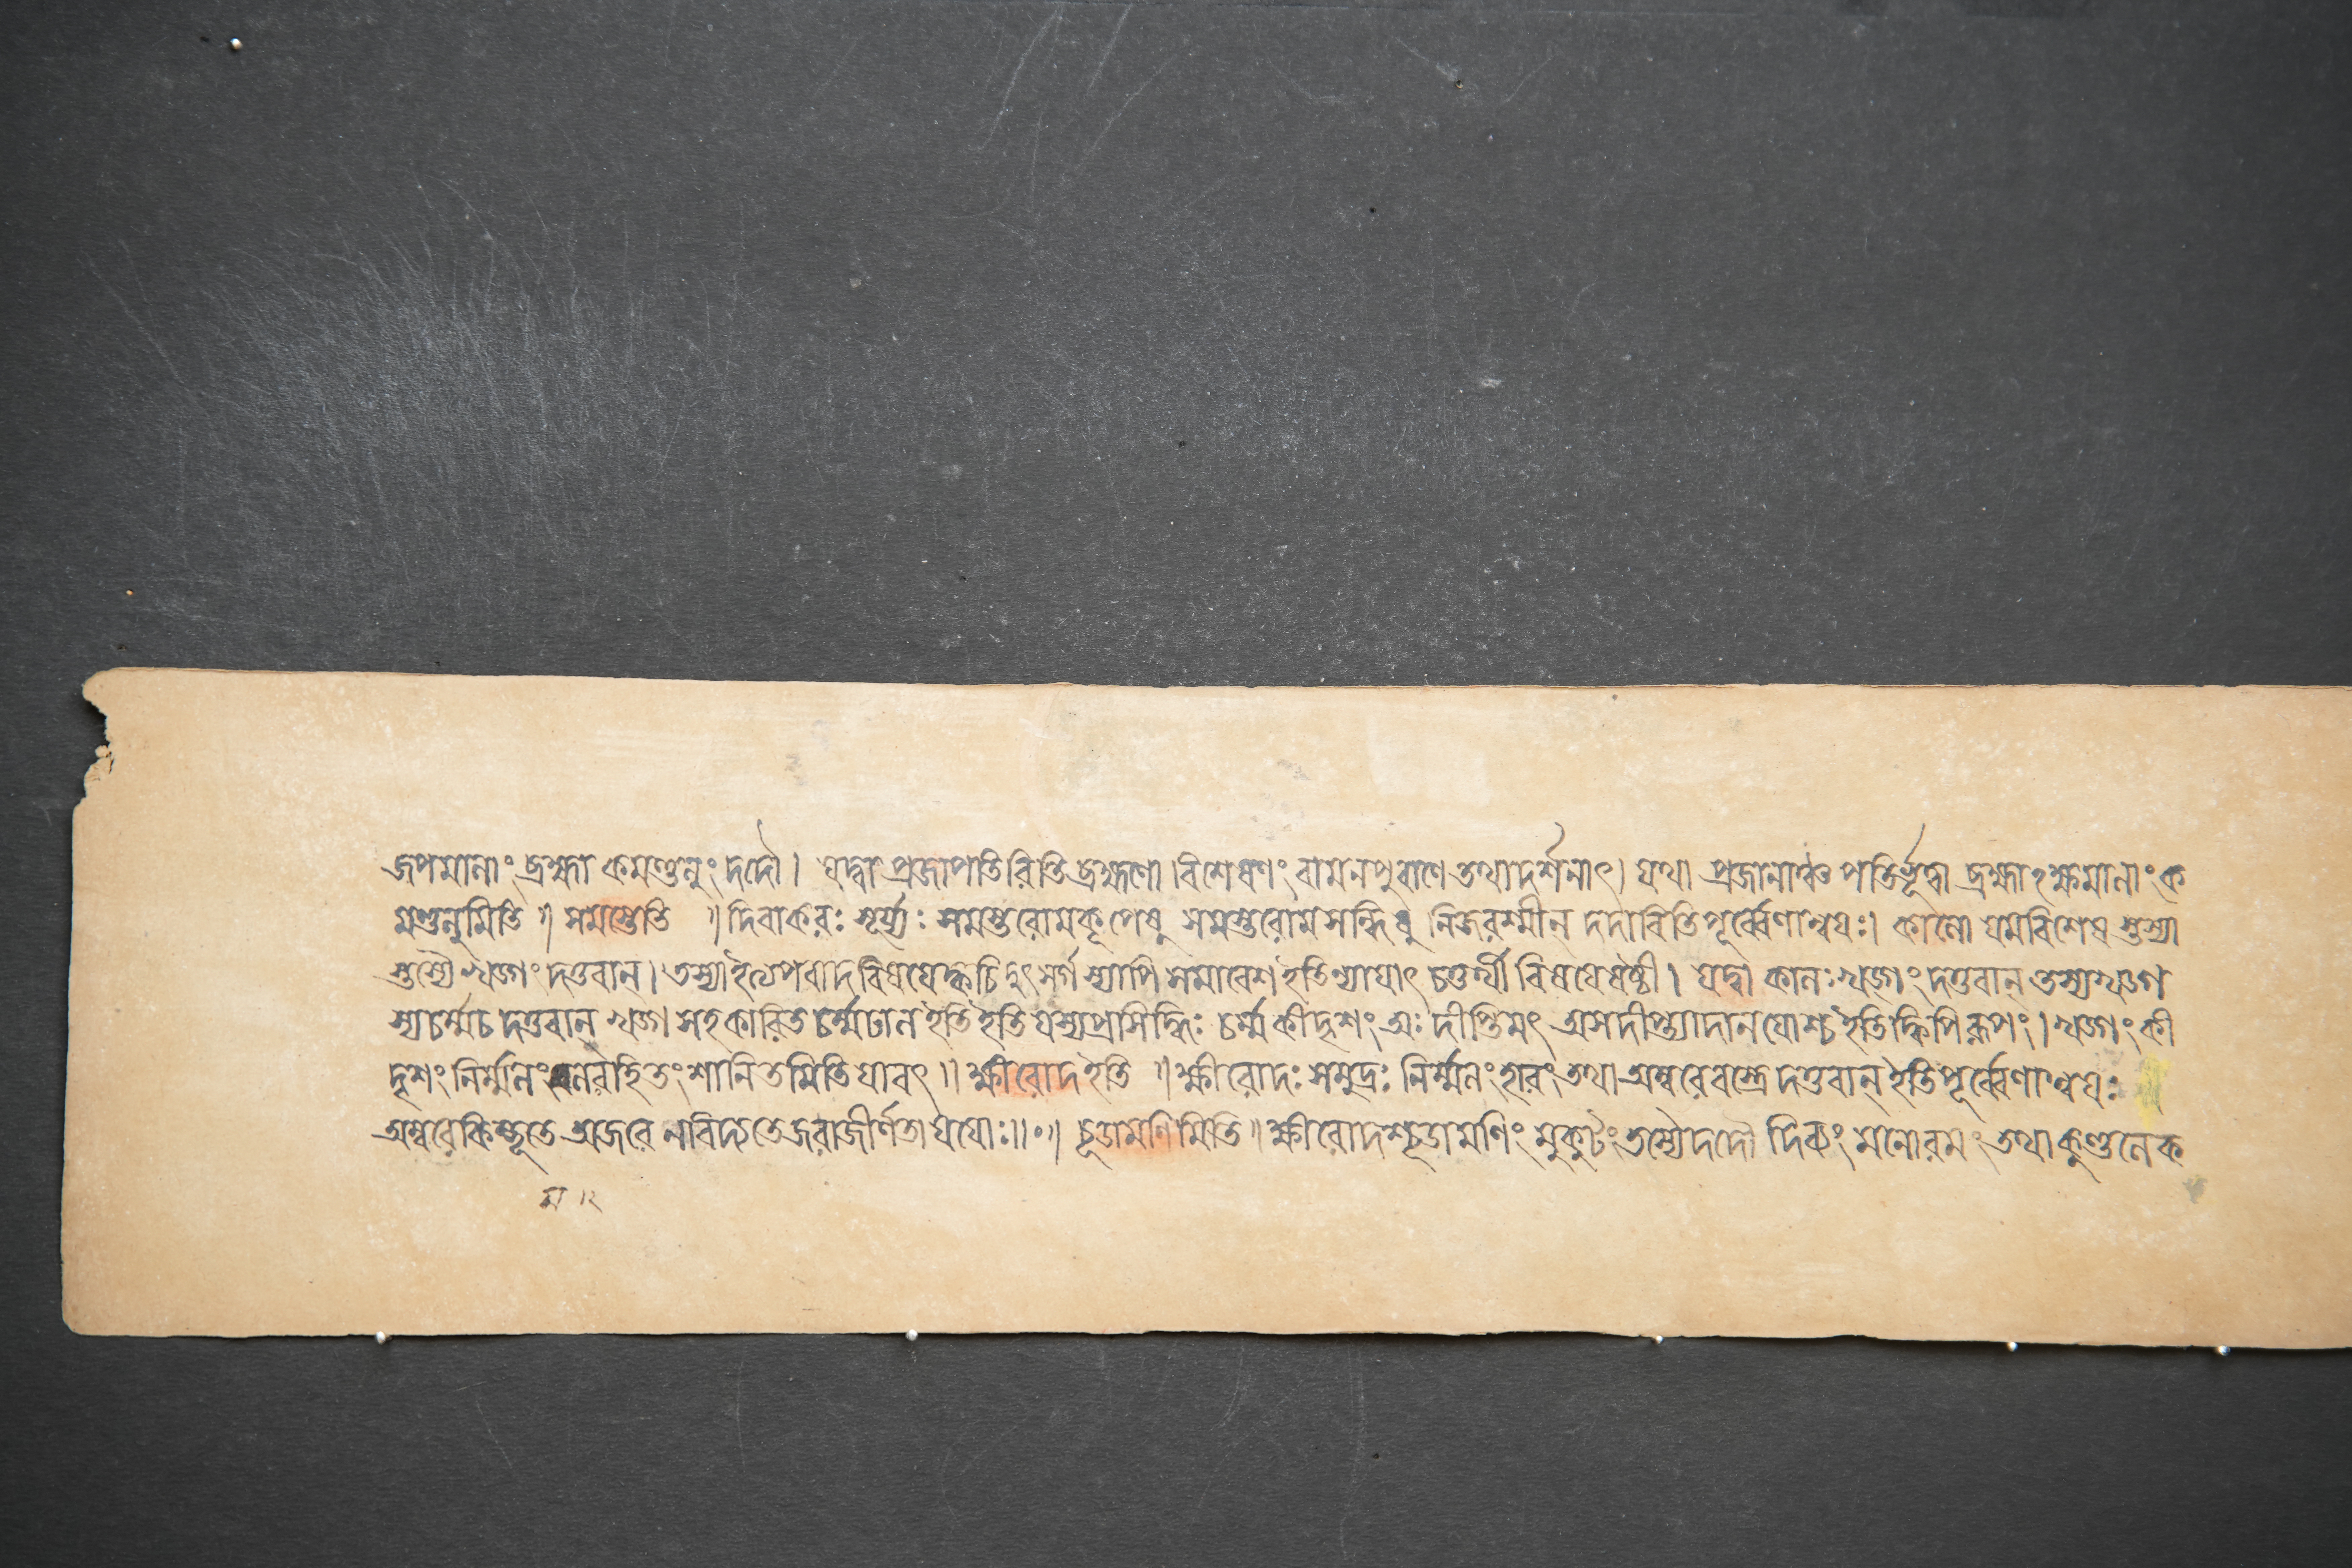 জপমালাং ব্রহ্মা কমণ্ডলুং দদৌ। যদ্বা প্রজাপতিরিতি ব্রহ্মণো বিশেষণং বামনপুরাণে তথাদর্শনাৎ। যথা প্রজানাঞ্চ পতির্ভূত্বা ব্রহ্মাঽক্ষমালাং ক
মণ্ডলুমিতি॥ সমস্তেতি ॥ দিবাকরঃ সূর্য্যঃ সমস্তরোমকূপেষু সমস্তরোমসন্ধিষু নিজরশ্মীন্ দদাবিতি পূর্ব্বেণান্বয়ঃ। কালো যমবিশেষস্তস্যা
স্তস্যৈ খড্গং দত্তবান্। তস্যা ইত্যপবাদবিষয়ে ক্বচিদুৎসর্গস্যাপি সমাবেশ ইতি ন্যায়াৎ চতুর্থীবিষয়ে ষষ্ঠী। যদ্বা কালঃ খড্গং দত্তবান্ তস্য খড্গ
স্য চর্ম্ম চ দত্তবান্ খড্গসহকারিত চর্ম্মঢাল ইতি ইতি যস্য প্রসিদ্ধিঃ চর্ম্ম কীদৃশং অঃ দীপ্তিমৎ অস দীপ্ত্যাদানয়োশ্চ ইতি ক্বিপি রূপং। খড্গং কী
দৃশং নির্ম্মলং মলরহিতং শানিতমিতি যাবৎ॥ ক্ষীরোদ ইতি ॥ ক্ষীরোদঃ সমুদ্রঃ নির্ম্মলং হারং তথা অম্বরে বস্ত্রে দত্তবান্ ইতি পূর্ব্বেণান্বয়ঃ
অম্বরে কিম্ভূতে অজরে ন বিদ্যতে জরা জীর্ণতা যয়োঃ॥০॥ চূডামণিমিতি॥ ক্ষীরোদশ্চূডামণিং মুকুটং তস্যৈ দদৌ দিব্যং মনোরমং তথা কুণ্ডলে ক